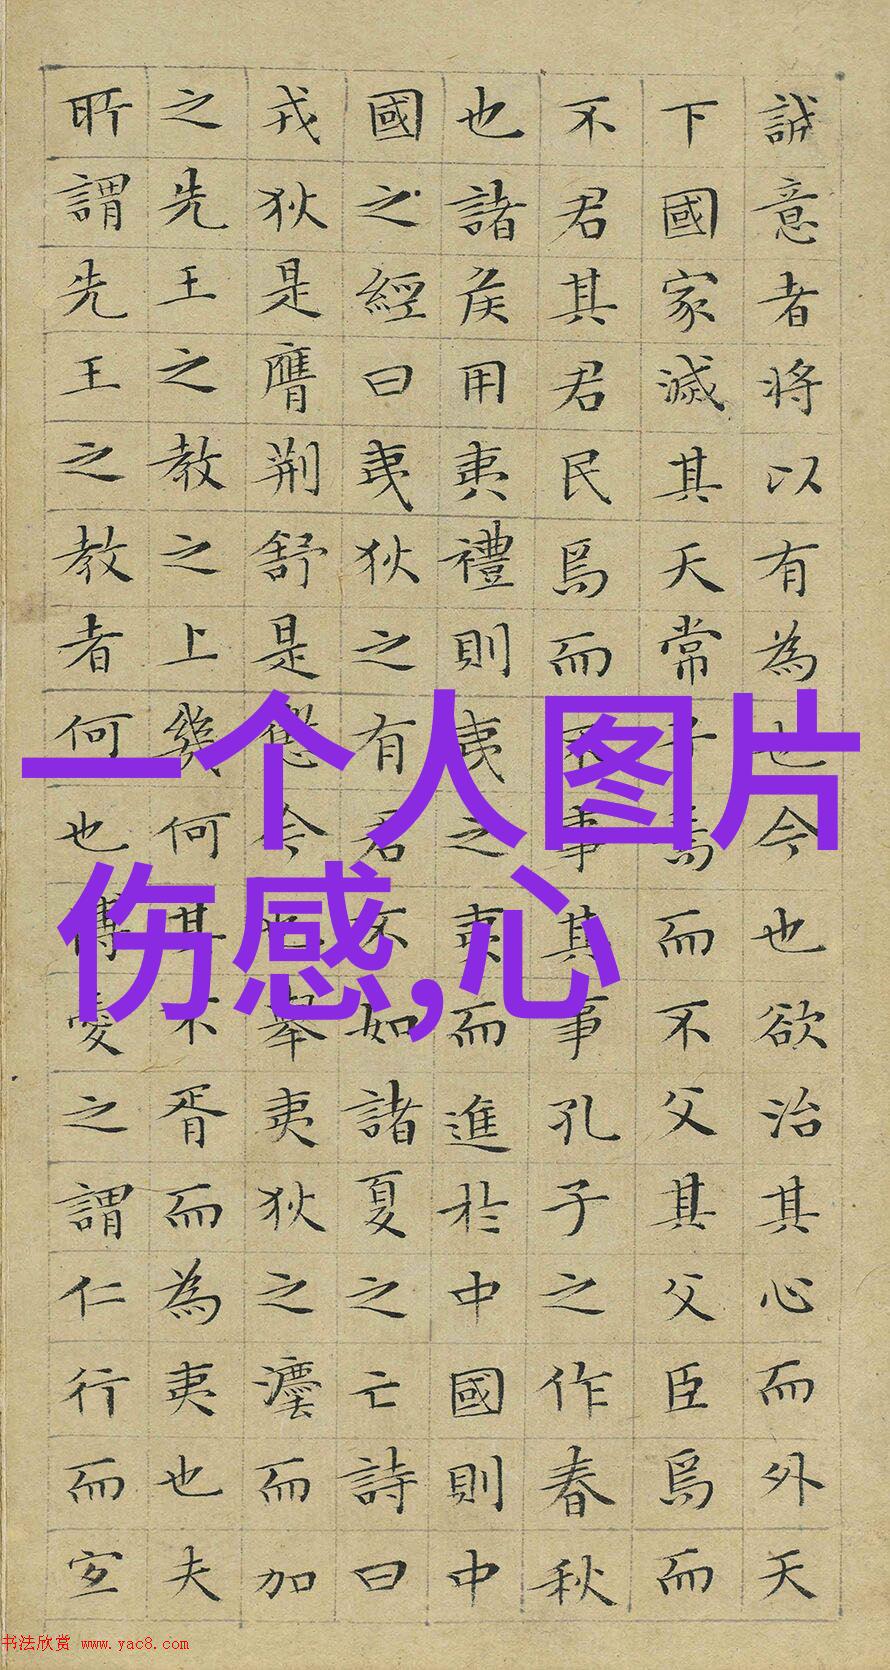 誠意者将以有為也今也欲治其心而外天
下國家滅其天常子焉而不父其父臣焉而
不君其君民焉而不事其事孔子之作春秋
也諸侯用夷禮則夷之夷而進於中國則中
國之經曰夷狄之有君不如諸夏之亡詩曰
戎狄是膺荆舒是懲今也舉夷狄之灋而加
之先王之教之上幾何其不胥而為夷也夫
所謂先王之教者何也博愛之謂仁行而宜
一个人图片
伤感,心
书法欣赏 www.yac8.com